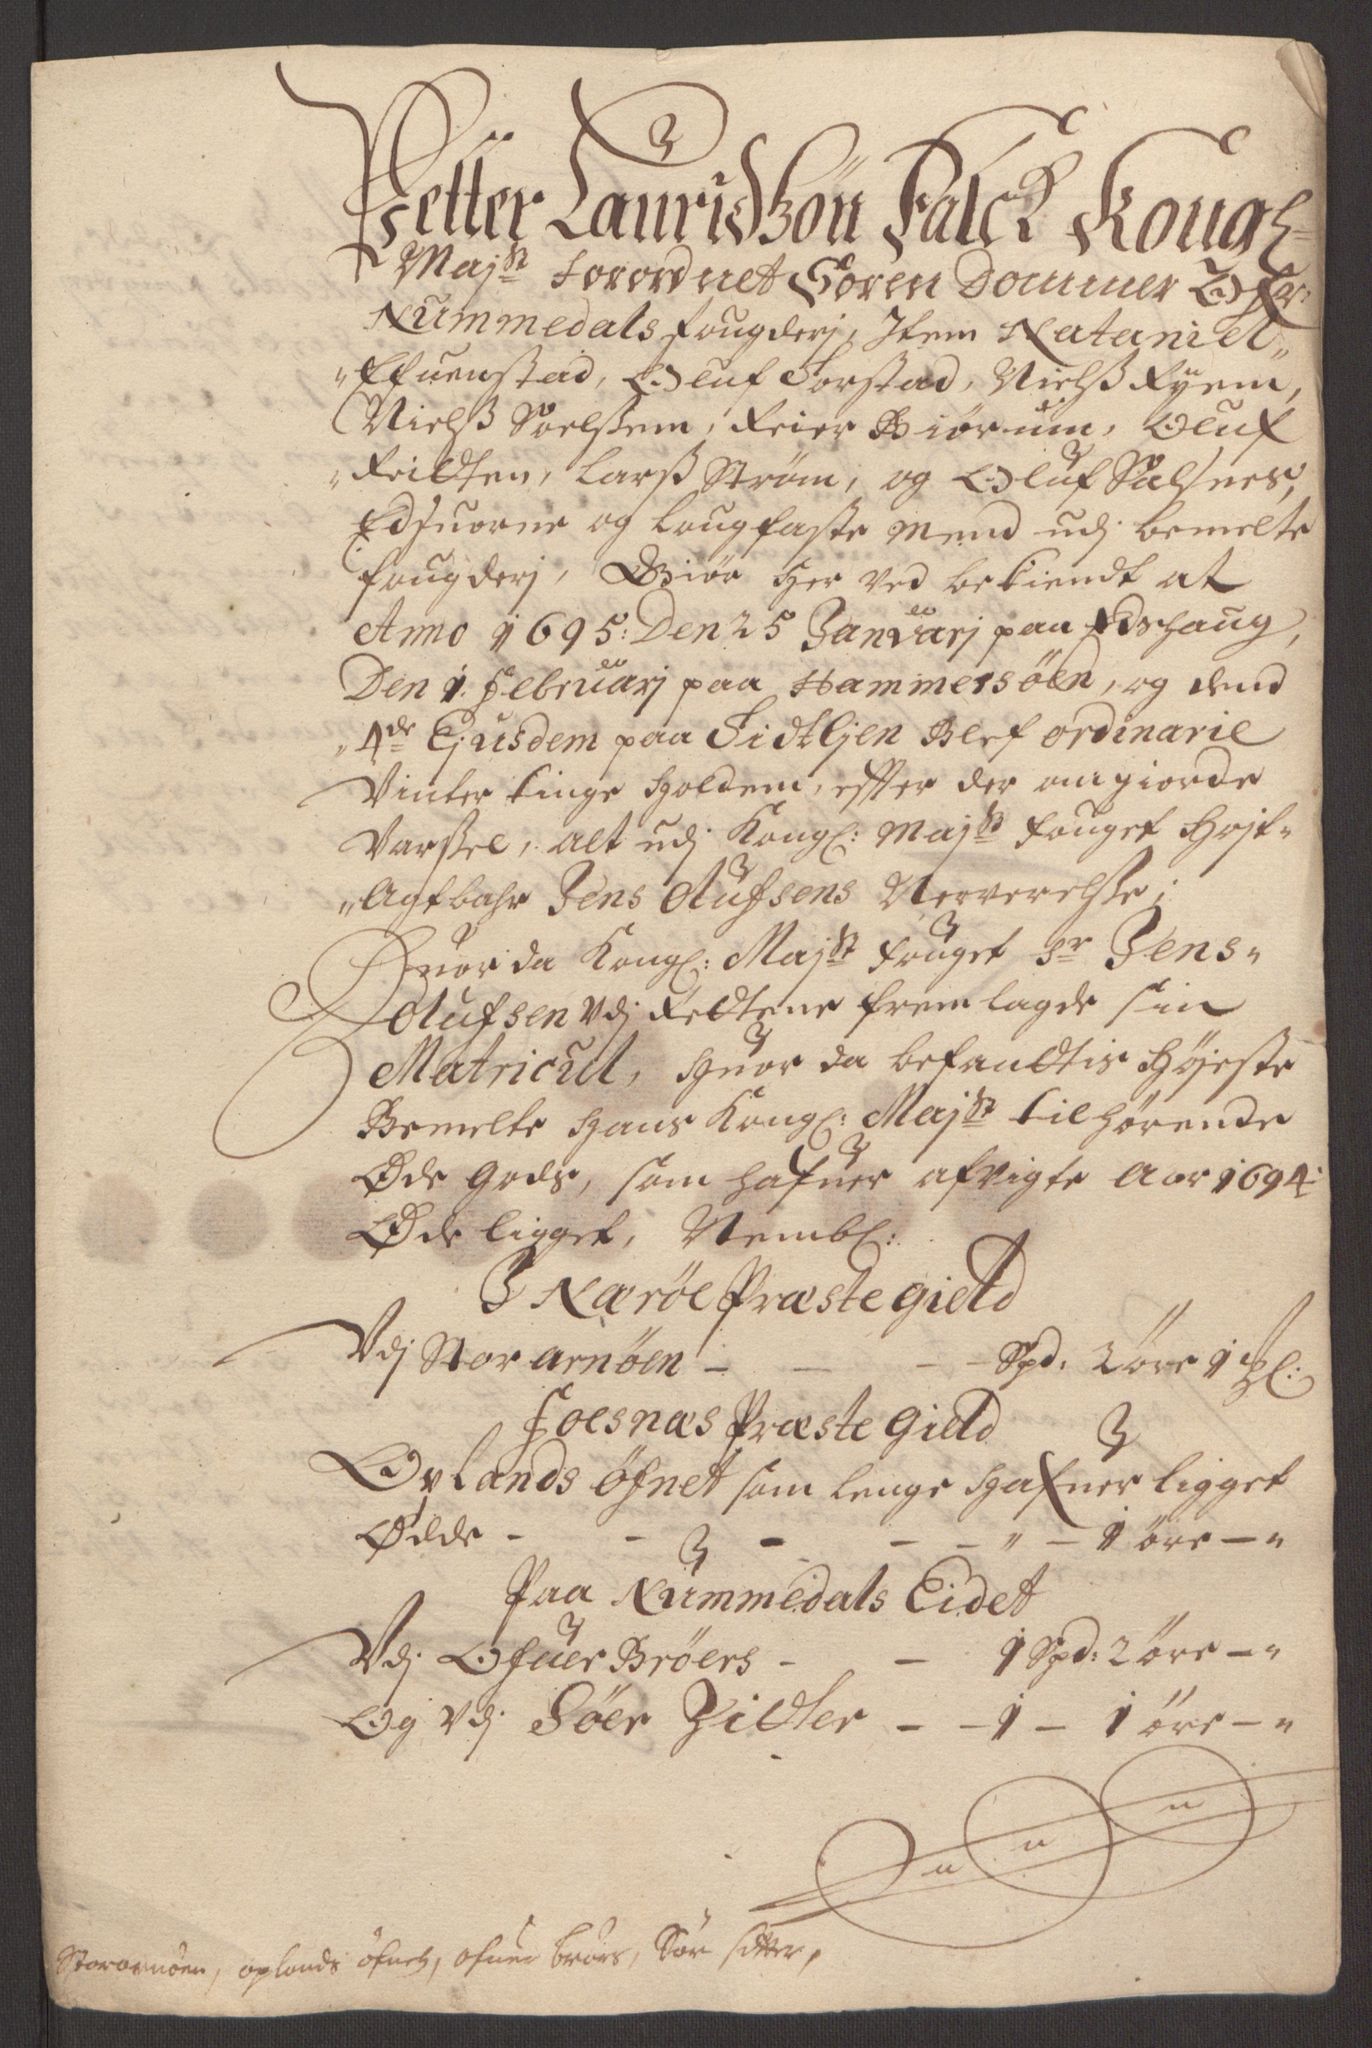 Petter Lauridsßön Falck Kongl:
Majst: forordnet Soren Dommer Ofr
Nummedals fougderj, Item Nataniel
Efuenstad, Oluf Forstad, Nielß Ryem,
Nielß Sælssem, Reier Biörum, Oluf
Feilten, Larß Strøm, og Oluf Salsnes,
Edsuorne og Laugfaste Mend udj bemelte
fougderj, Giør Her ved bekiendt at
Anno 1695: Den 25 Januarj paa Edshaug,
Den 1. Februarj paa Hammersöen, og dend
4de Ejusdem paa Fidtljen Blef ordinarie
Vinter tinge Holden, effter der om giorde
Varssel, alt udj Kongl: Majst fouget Højt-
Agtbahr Jens Olufsens Nerverelsse;
Huor da Kongl: Majst fouget Sr Jens
Olufsen Vdj Rettene frem lagde sin
Matricul, Huor da befandtis Højeste
Bemelte Hans Kongl: Majst tilhørende
Øde Gods, som hafuer afvigte Aar 1694:
Øde ligget, Nembl:
J Næröe Præstegield
Vdj Stor arnöen - - - - Spd: 2 öre 1 Ml:
Foesnæs Præste Gield
Oplands öfnet som lenge Hafuer ligget
Ødde - - - - - " - 1 öre - "
Paa Nummedals Eidet
Vdj Ofuer Bröers - - 1 Spd: 2 öre - "
Og Vdj Söer Zidter - - 1 - 1 öre - "
Stor arnöen, oplands öfnet, ofuer brörs, Sör sitter,